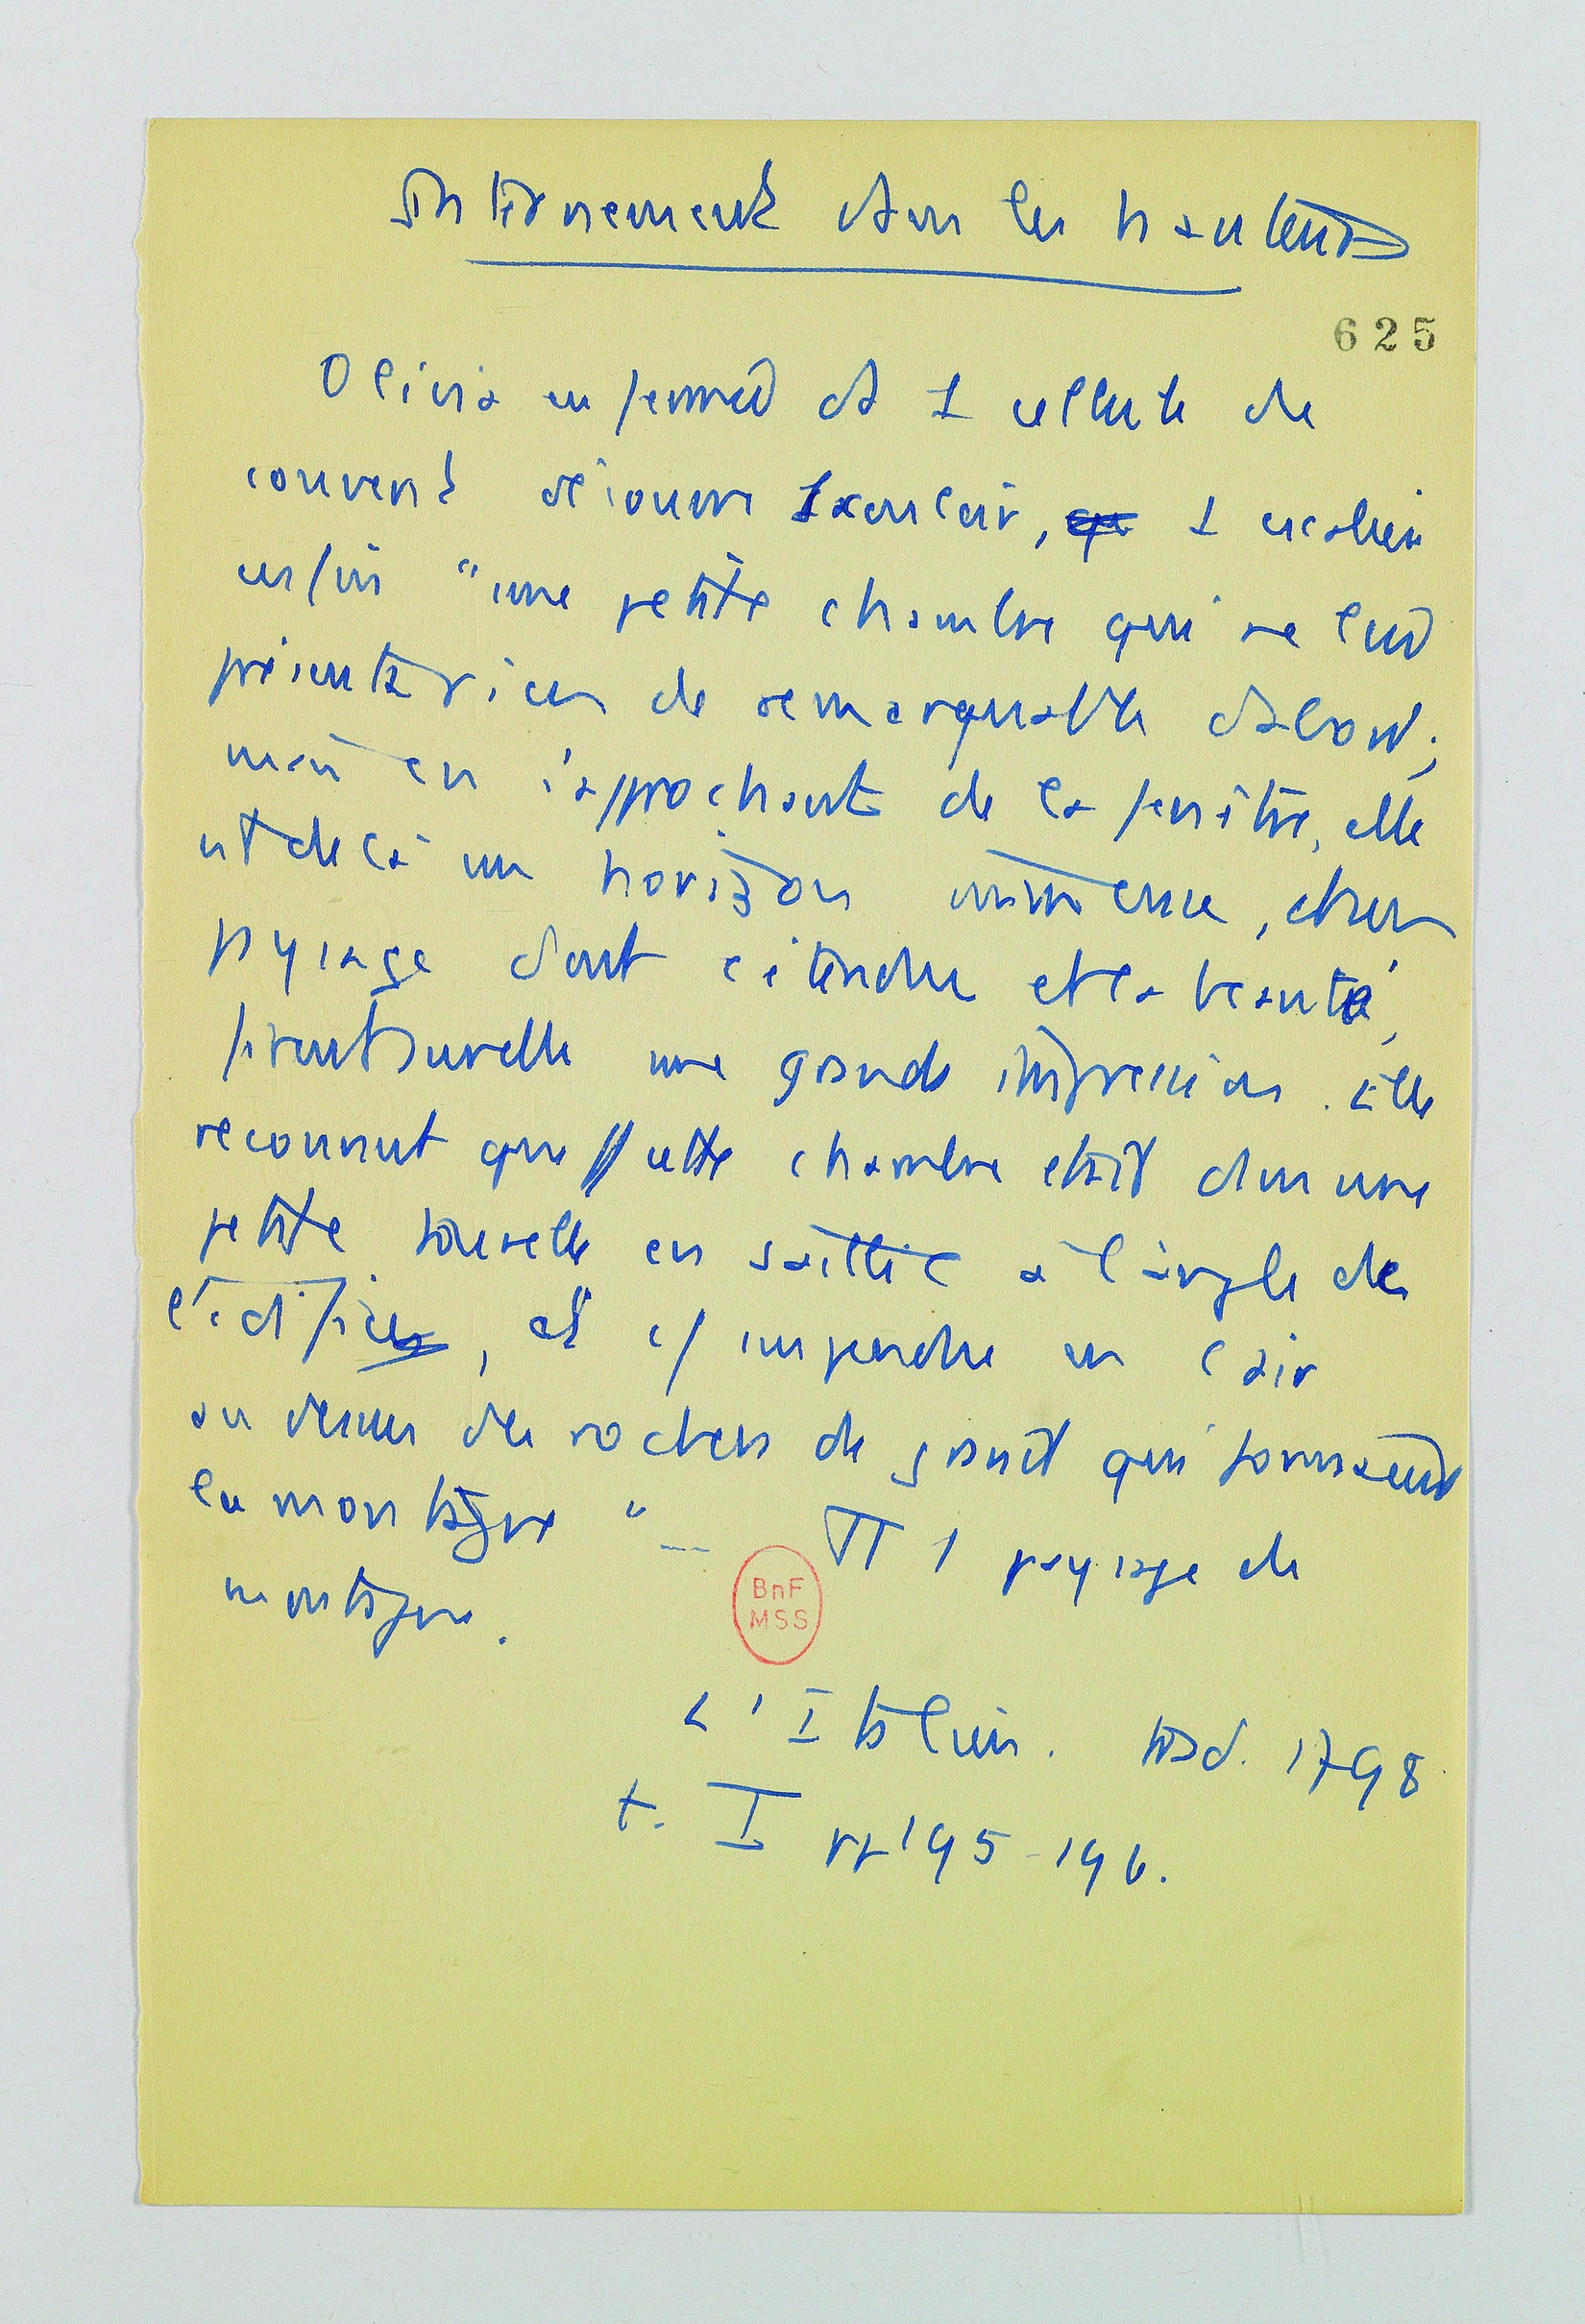 Internement dans les hauteurs
625
Olivia enfermée ds 1 cellule de
couvent découvre 1 couloir, qu 1 escalier
enfin "une petite chambre qui ne lui
présenta rien de remarquable d'abord ;
mais en s'approchant de la fenêtre, elle
vit de là un horizon immense, et un
paysage dont l'étendue et la beauté,
firent sur elle une grande impression. Elle
reconnut que cette chambre était dans une
petite tourelle en saillie à l'angle de
l'édifice, et suspendue en l'air
au dessus des rochers de granit qui formaient
la montagne "...   1 paysage de
montagne.
BnF
MSS
L'Italien. trad. 1798
t. I pp 195-196.